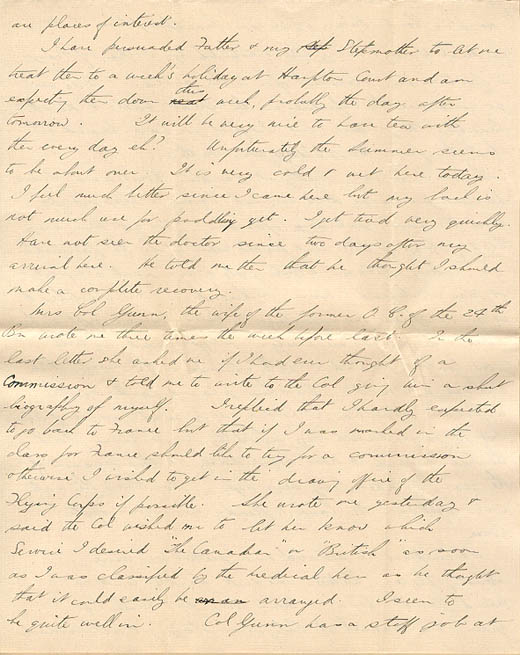 are places of interest.
I have persuaded Father & my step Stepmother to let me
treat them to a week's holiday at Hampton Court and am
expecting them down next this week, probably the day after
tomorrow. It will be very nice to have tea with
them every day eh? Unfortunately the Summer seems
to be about over. It is very cold & wet here today.
I feel much better since I came here but my back is
not much use for paddling yet. I get tired very quickly.
Have not seen the doctor since two days after my
arrival here. He told me then that he thought I should
make a complete recovery.
Mrs Col Gunn, the wife of the former O.C. of the 24th
Bn wrote me three times the week before last. In the
last letter she asked me if I had ever thought of a
Commission & told me to write to the Col giving him a short
biography of myself. I replied that I hardly expected
to go back to France but that if I was marked in the
class for France should like to try for a commission
otherwise I wished to get in the drawing office of the
Flying Corps if possible. She wrote me yesterday &
said the Col wished me to let her know which
Service I desired "The Canadian" or "British" as soon
as I was classified by the medical men as he thought
that it could easily be arranged. I seem to
be quite well in. Col Gunn has a staff job at